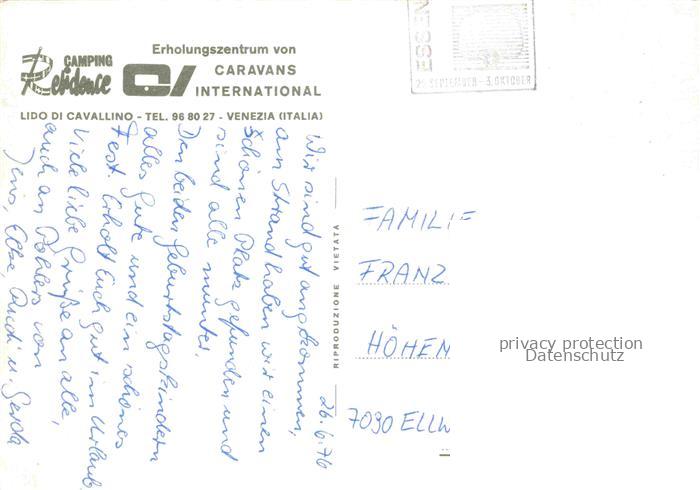 CAMPING
Residence
Erholungszentrum von
CARAVANS
INTERNATIONAL
LIDO DI CAVALLINO - TEL. 96 80 27 - VENEZIA (ITALIA)
ESSEN
SEPTEMBER - 3. OKTOBER
26.6.76
Wir sind gut angekommen,
am Strand haben wir einen
schönen Platz gefunden und
sind alle munter.
Den beiden Geburtstagskindern
alles Gute und ein schönes
Fest. Erholt Euch gut im Urlaub
Viele liebe Grüße an alle,
auch an Pöhlers von
Jens, Elke, Rudi u. Gerda
RIPRODUZIONE VIETATA
FAMILIE
FRANZ
HÖHEN
7090 ELLW
privacy protection
Datenschutz